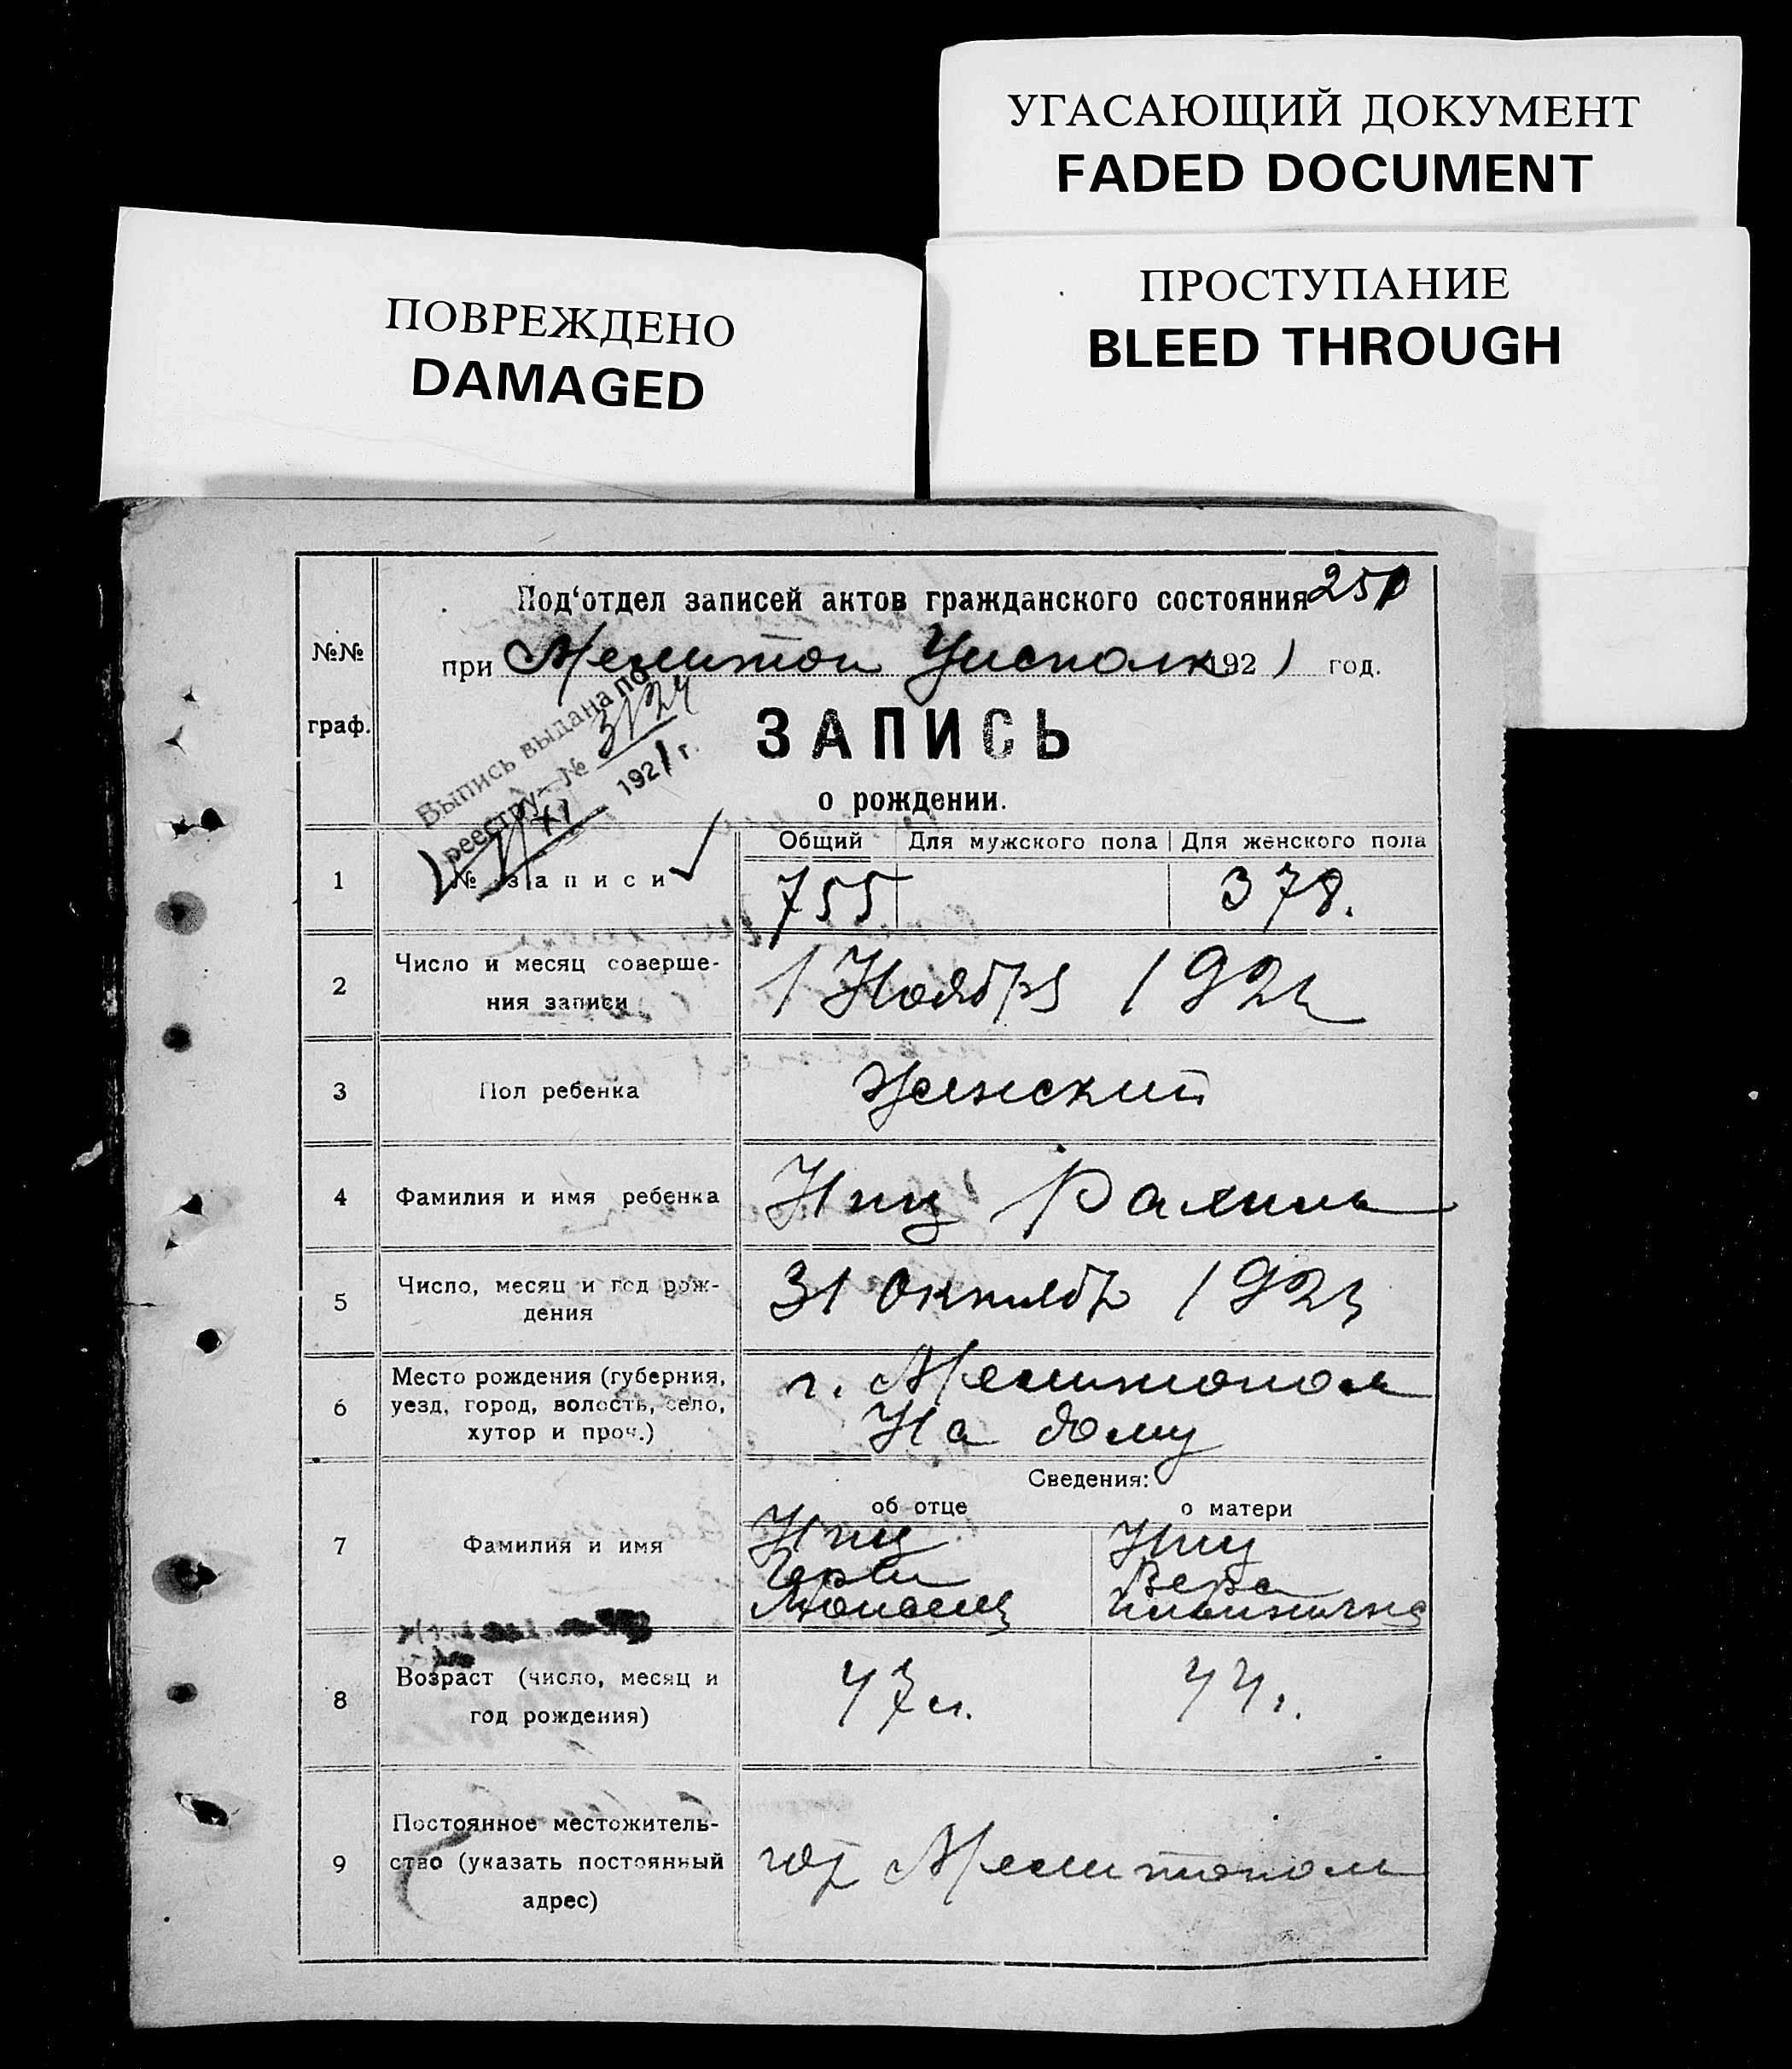 УГАСАЮЩИЙ ДОКУМЕНТ
FADED DOCUMENT
ПРОСТУПАНИЕ
BLEED THROUGH
ПОВРЕЖДЕНО
DAMAGED
Под‘отдел записей актов гражданского состояния 251
№№ граф.
при Мелитоп Уисполк 1921 год.
Выпись выдана по
реестру № 3124
XI 1921 г.
ЗАПИСЬ
о рождении.
Общий Для мужского пола Для женского пола
1 № записи 755 378.
2 Число и месяц соверше-
ния записи 1 Ноября 1921
3 Пол ребенка Женский
4 Фамилия и имя ребенка Нпц Рахиль
5 Число, месяц и год рож-
дения 31 Октябр 1921
6 Место рождения (губерния,
уезд, город, волость, село,
хутор и проч.)
г. Мелитополь
На дому
Сведения:
об отце о матери
7 Фамилия и имя
Вера
8 Возраст (число, месяц и
год рождения) 47 л. 44.
9 Постоянное местожитель-
ство (указать постоянный
адрес)
гор Мелитополь